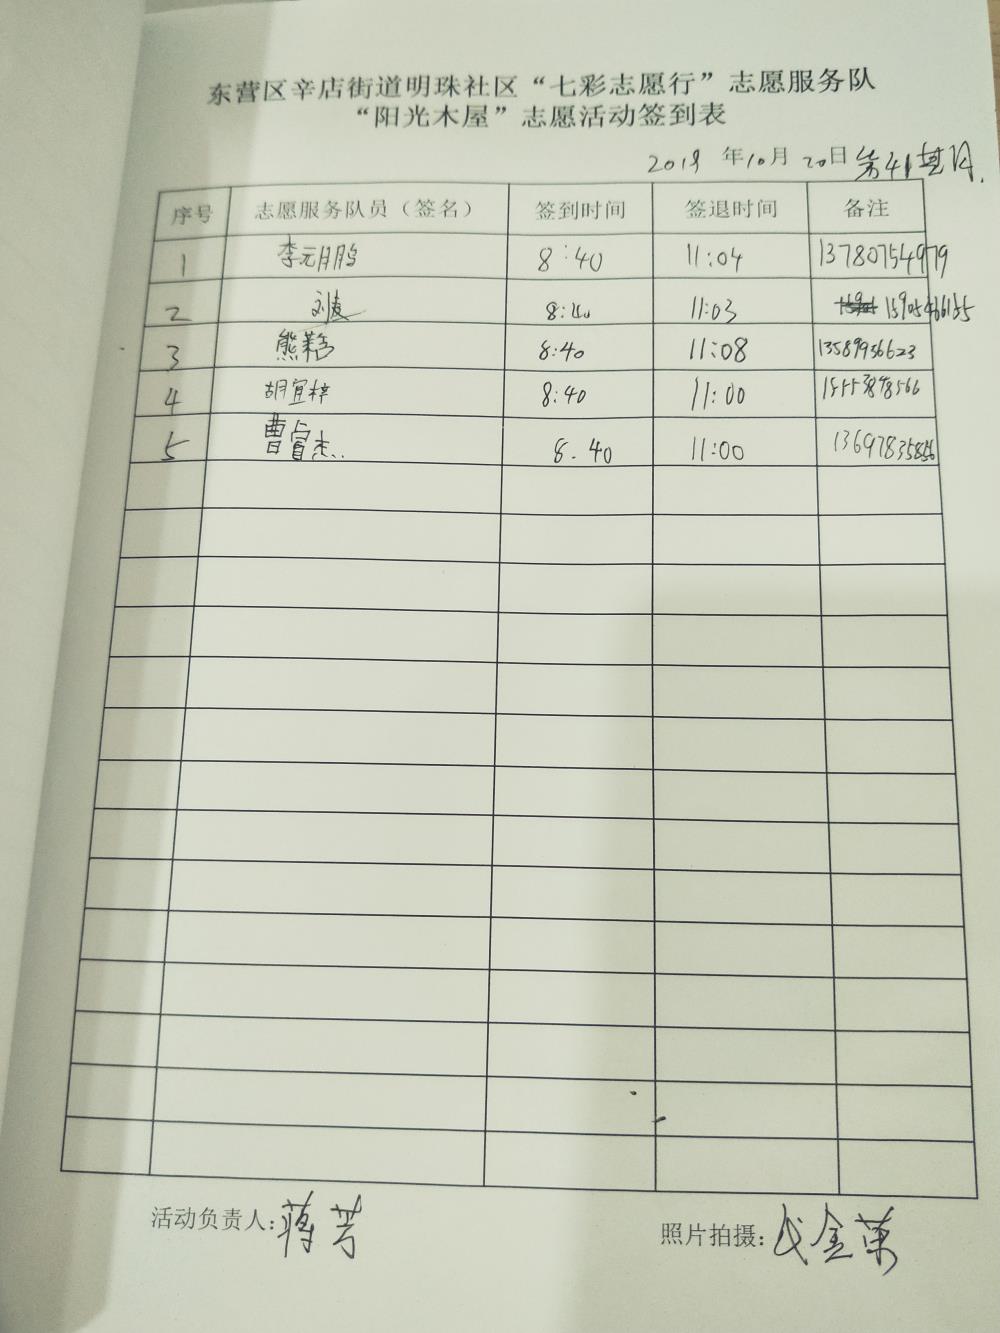 东营区辛店街道明珠社区“七彩志愿行”志愿服务队
“阳光木屋”志愿活动签到表
2019 年10月 20日 第41基日.
序号 志愿服务队员（签名） 签到时间 签退时间 备注
1 李元月鹏 8:40 11:04 13780754979
2 刘 8:40 11:03 15905466155
3 熊 8:40 11:08 13589956623
4 胡宜梓 8:40 11:00
5 曹 杰.. 8.40 11:00 13697835856
活动负责人:蒋芳 照片拍摄: 金